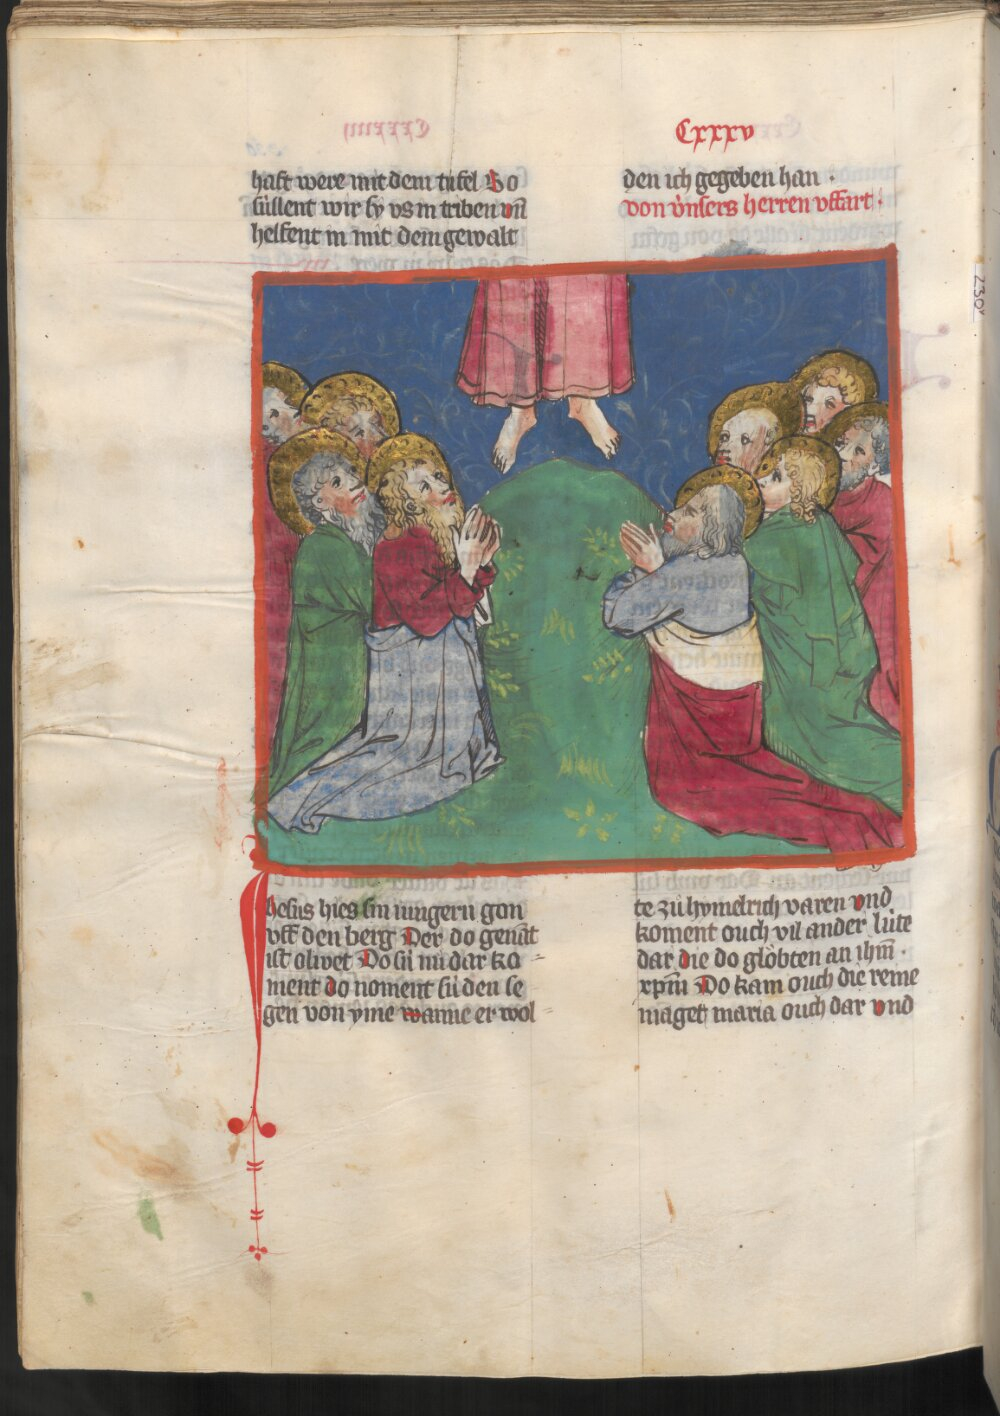 Cxxxv
haft were mit dem tufel So
süllent wir sy vs in triben vn̄
helfent in mit dem gewalt
den ich gegeben han ·
von vnsers herren vffart ·
Jhesus hies sin iungern gon
vff den berg Der do genāt
ist olivet Do sü nu dar ko
ment do noment sü den se
gen von yme wanne er wol
te zü hymelrich varen vnd
koment ouch vil ander lüte
dar die do glöbten an ihm̄ ·
xpm̄ Do kam ouch die reine
maget maria ouch dar vnd
230v